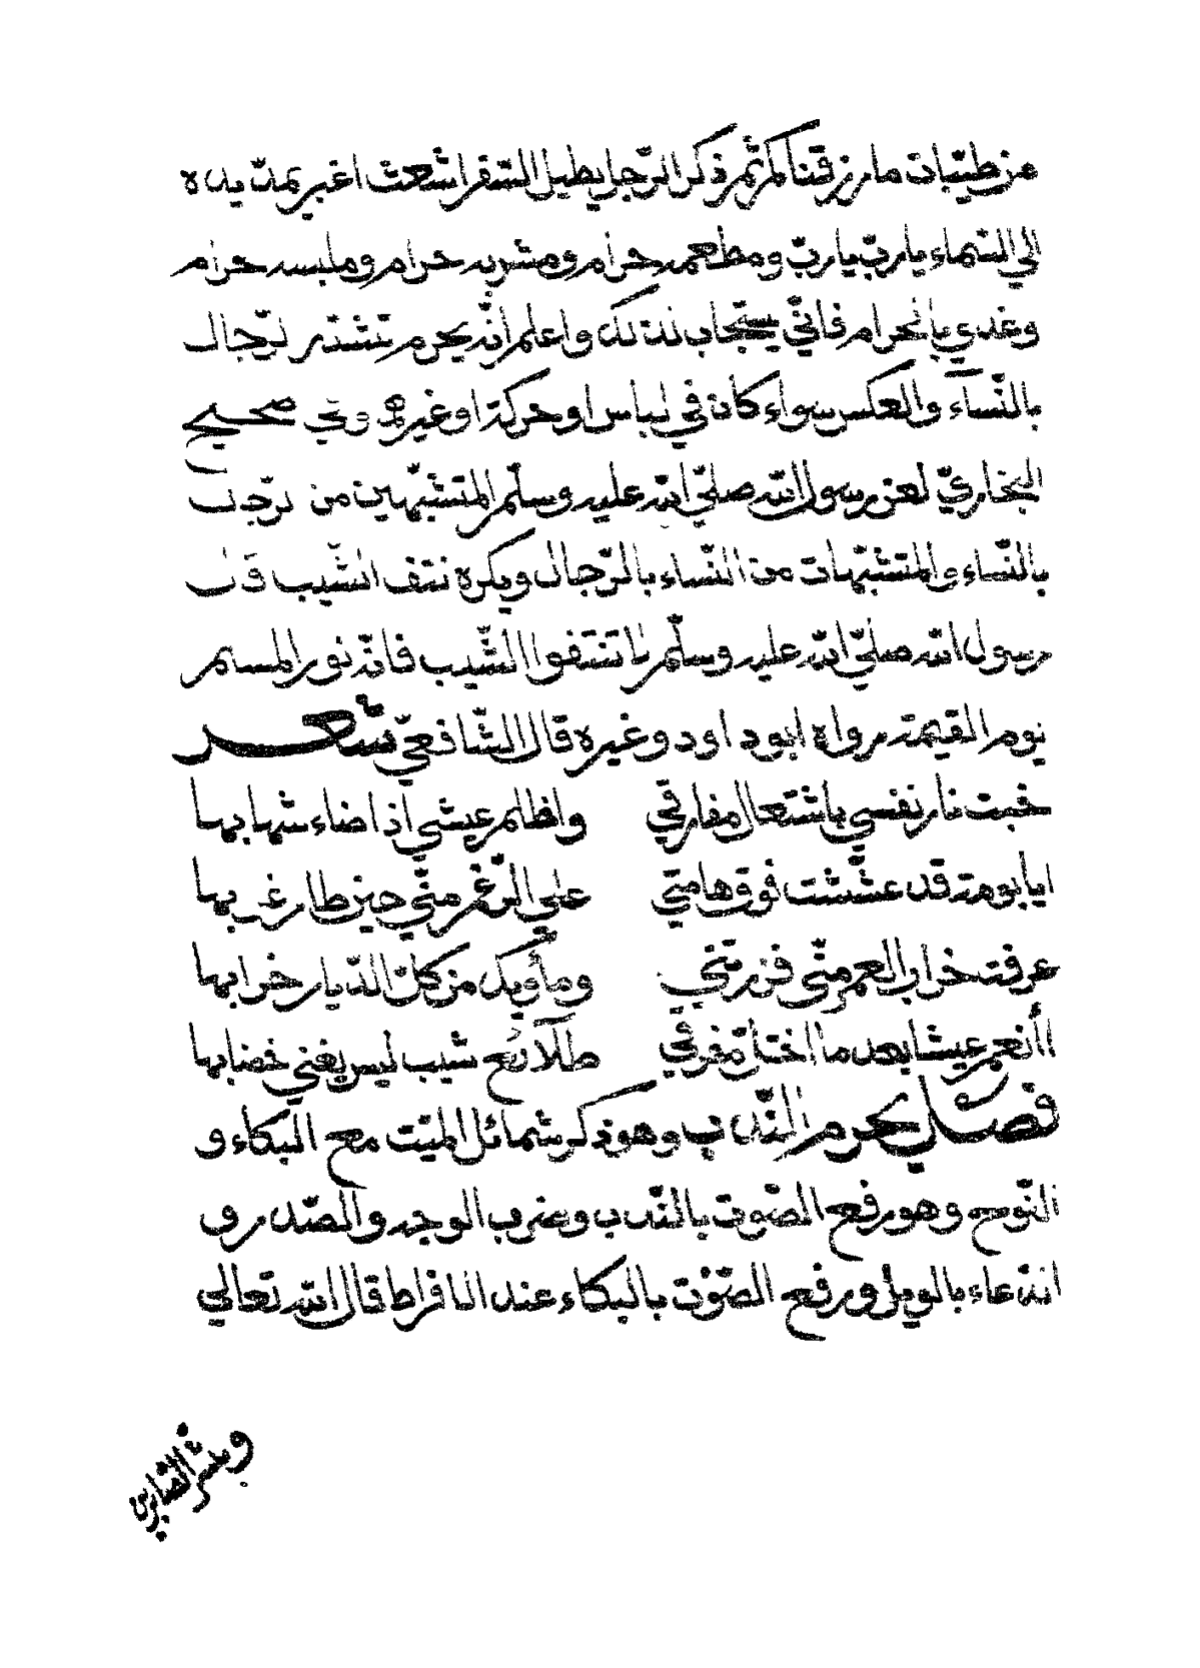 من طيّبات ما رزقناكم ثم ذكر الرّجل يطيل السّفر اشعث اغبر يمدّ يده
الي السّماء يا ربّ يا ربّ ومطعمه حرام ومشربه حرام وملبسه حرام
وغدي بالحرام فانّي يستجاب لذلك واعلم انّه يحرم تشبّه الرّجال
بالنّسآء والعكس سواء كان في لباس او حركة او غيرهما وفي صحيح
البخاريّ لعن رسول اللّه صلّي اللّه عليه وسلّم المتشبّهين من الرّجال
بالنّساء والمتشبّهات من النّساء بالرّجال ويكره نتف الشّيب قال
رسول اللّه صلّي اللّه عليه وسلّم لا تنتفوا الشّيب فانّه نور المسلم
يوم القيمة رواه ابو داود وغيره قال الشّافعيّ شعر
خبت نار نفسي باشتعال مفارقي واظلم عيشي اذا ضاء شهابها
ايا بومة قد عشّشت فوق هامتي علي الرّغم منّي حين طار غرابها
عرفت خراب العمر منّي فزرتني ومأويك من كلّ الدّيار خرابها
أأنعم عيشا بعد ما اختلّ مفرقي طلآئع شيب ليس يغني خضابها
فصل يحرم النّدب وهو ذكر شمائل الميّت مع البكاء و
النّوح وهو رفع الصّوت بالنّدب وضرب الوجه والصّدر و
الدّعاء بالويل ورفع الصّوت بالبكاء عند الافراط قال اللّه تعالي
وبشّر الصّابرين